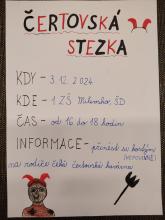 ČERTOVSKÁ
STEZKA
KDY - 3.12.2024
KDE - 1.ZŠ Milevsko, ŠD
ČAS - od 16 do 18 hodin
INFORMACE - přenést su kostým
(NEPOVINNÉ)
na rodiče čeká čertovská kavárna